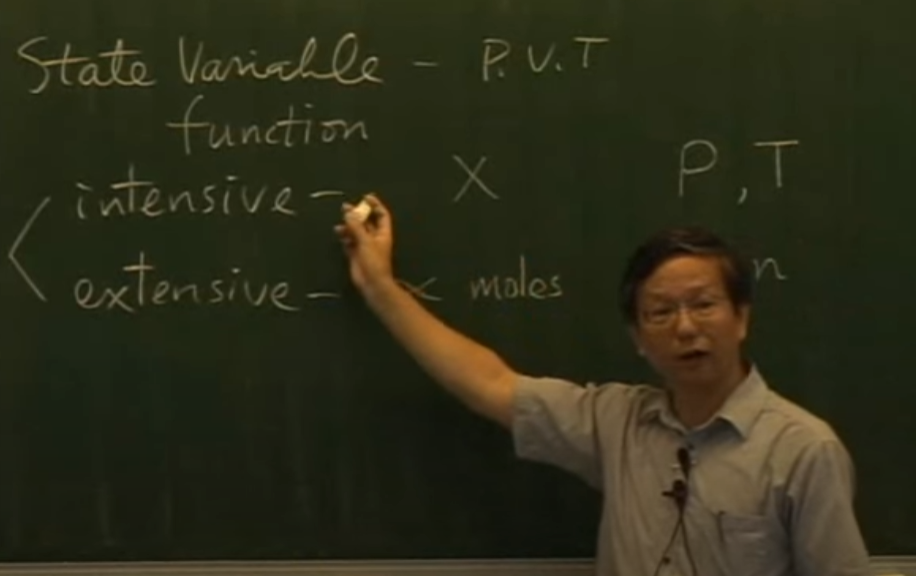 State Variable - P.V.T
function
intensive - X P, T
extensive - ∝ moles n